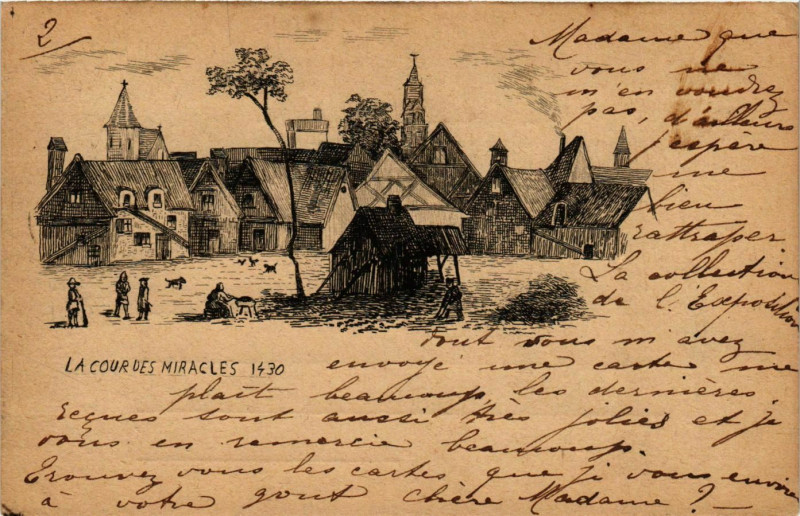 2
Madame que
vous ne
m'en voudrez
pas, d'ailleurs
j'espère
me
bien
rattraper
La collection
de l'Exposition
dont vous m'avez
LA COUR DES MIRACLES 1430
envoyé une carte me
plait beaucoup, les dernières
reçues sont aussi très jolies et je
vous en remercie beaucoup.
Trouvez vous les cartes que je vous envoie
à votre gout chère Madame ? —